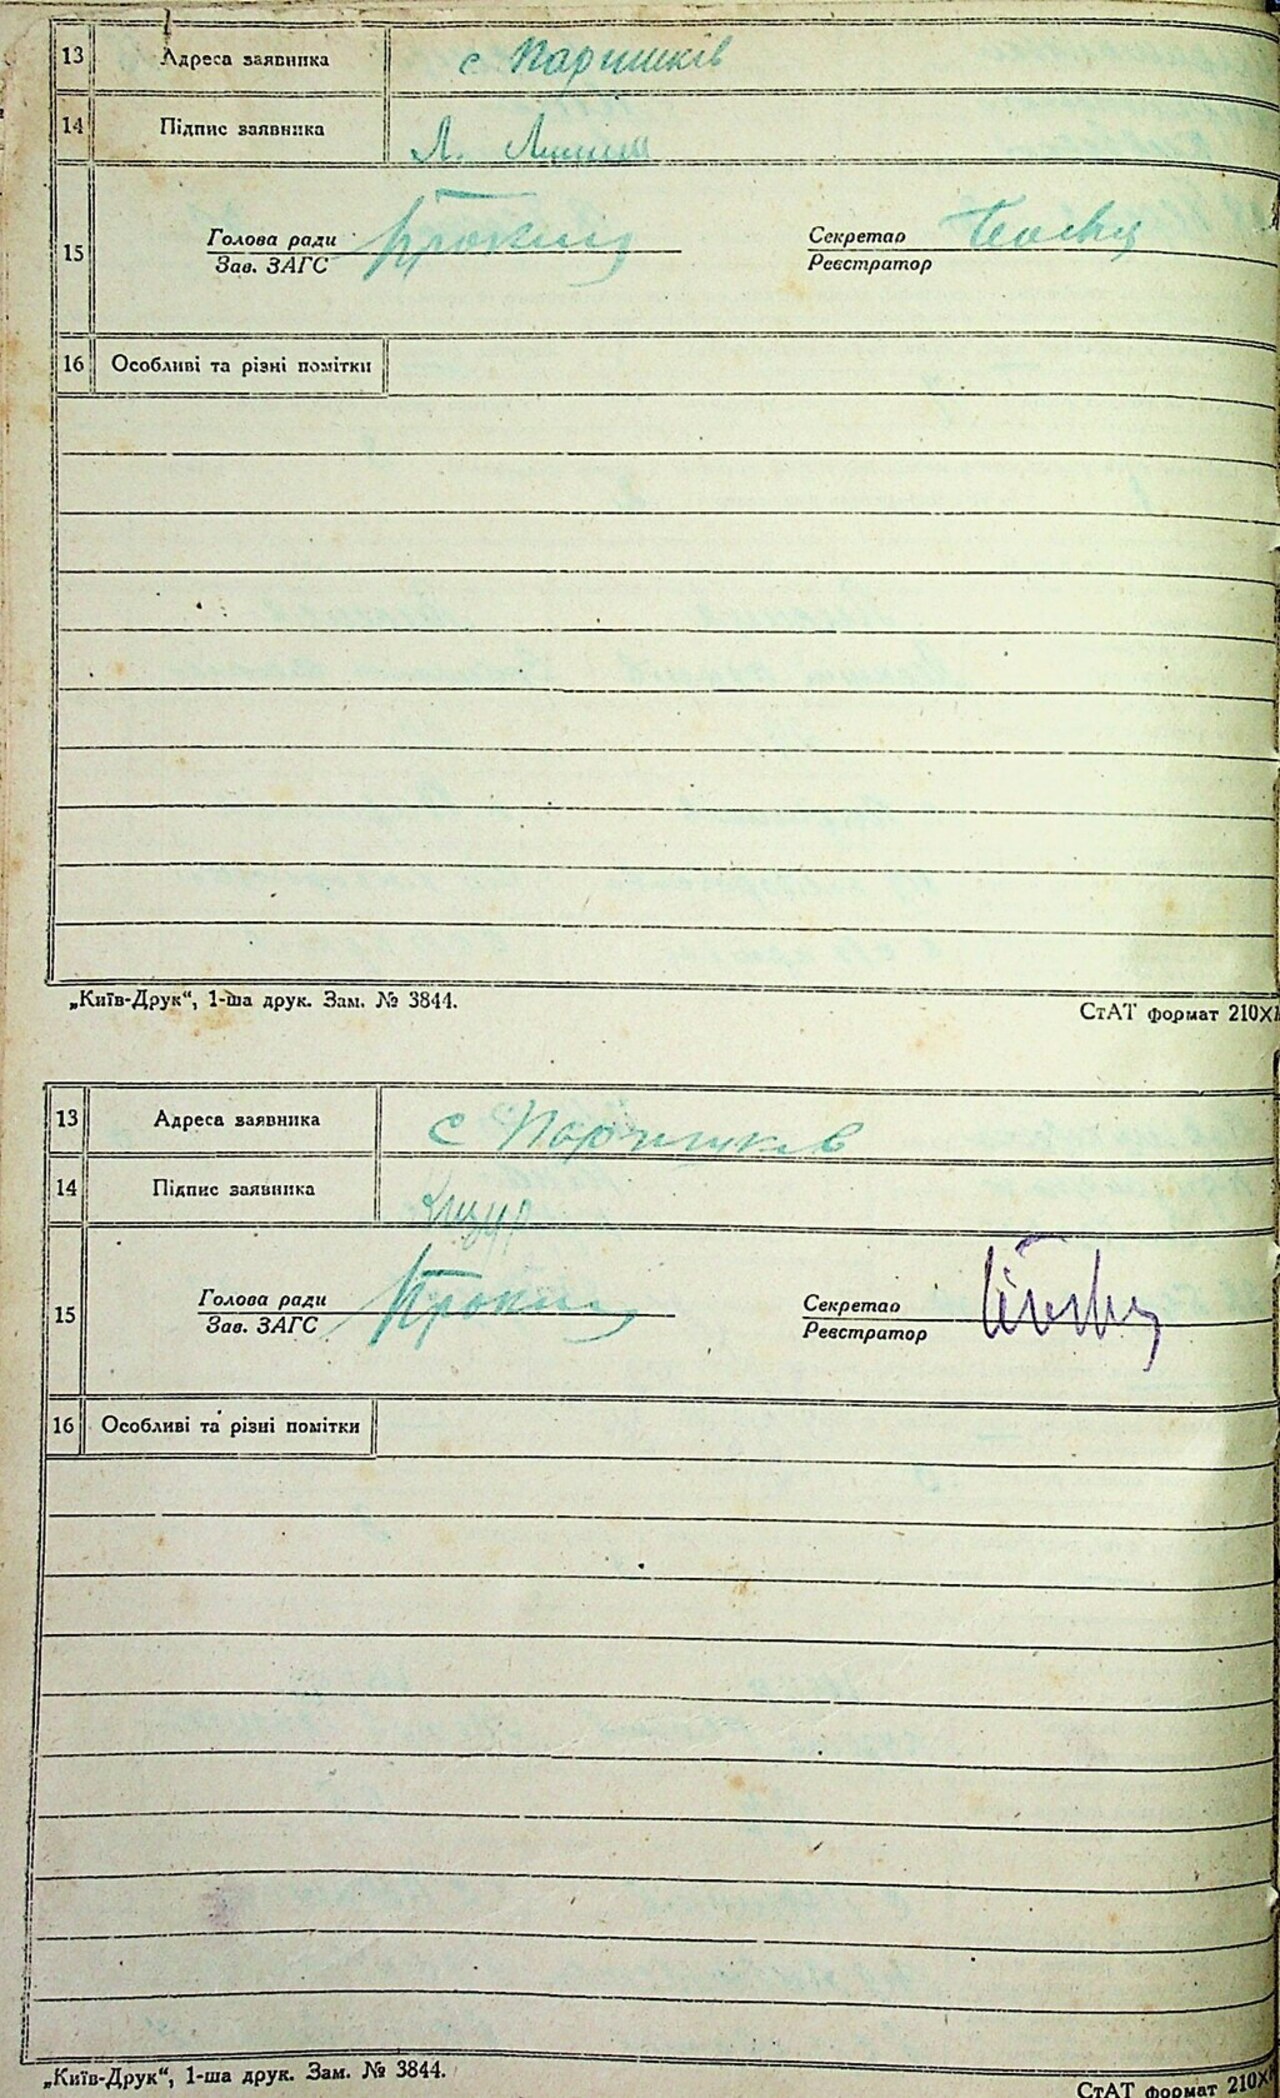 13 Адреса заявника с Паришків
14 Підпис заявника Л.
15 Голова ради Секретар
Зав. ЗАГС Реєстратор
16 Особливі та різні помітки
„Київ-Друк“, 1-ша друк. Зам. № 3844. СтАТ формат 210Х
13 Адреса заявника с Паришків
14 Підпис заявника
15 Голова ради Секретар
Зав. ЗАГС Реєстратор
16 Особливі та різні помітки
„Київ-Друк“, 1-ша друк. Зам. № 3844. СтАТ формат 210Х